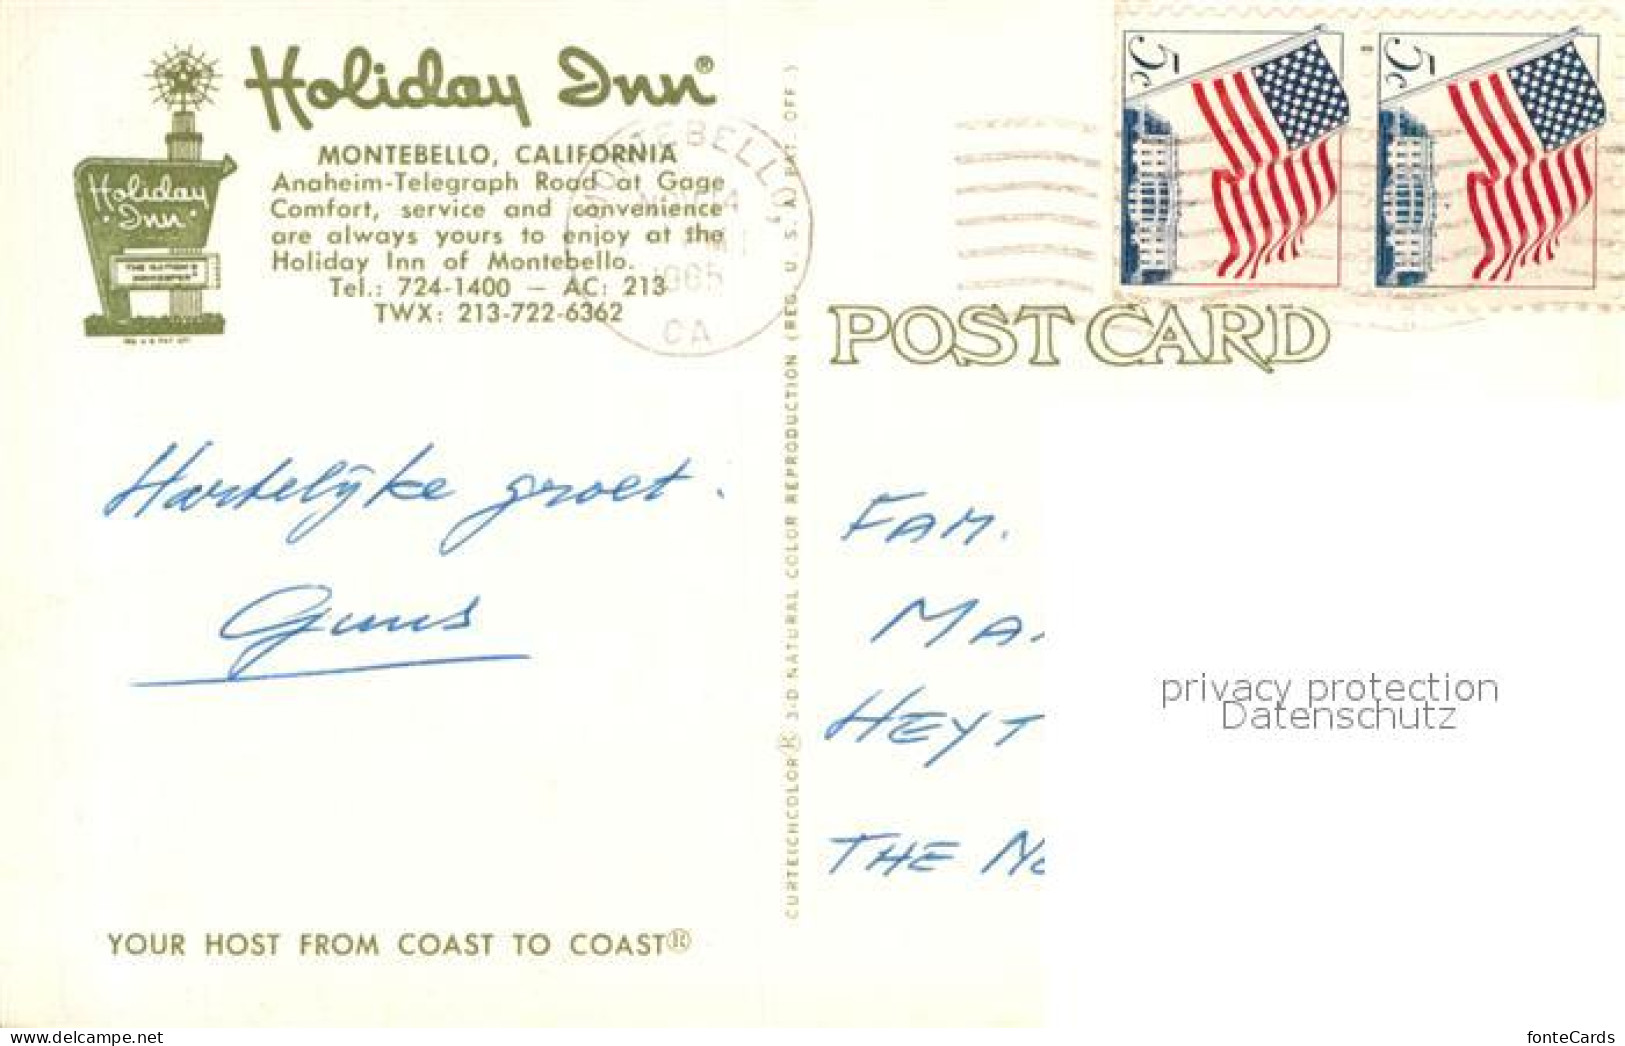 Holiday Inn®
MONTEBELLO, CALIFORNIA
Anaheim-Telegraph Road at Gage
Comfort, service and convenience
are always yours to enjoy at the
Holiday Inn of Montebello.
Tel.: 724-1400 — AC: 213
TWX: 213-722-6362
Holiday
Inn
THE NATION'S
INNKEEPER
MONTEBELLO,
1965
CA
5c
5c
POST CARD
Hartelijke groet.
Guus
FAM.
MA
HEYT
THE Ne
CURTEICHCOLOR® 3-D NATURAL COLOR REPRODUCTION (REG. U. S. A. PAT. OFF.)
YOUR HOST FROM COAST TO COAST®
privacy protection
Datenschutz
www.delcampe.net
fonteCards